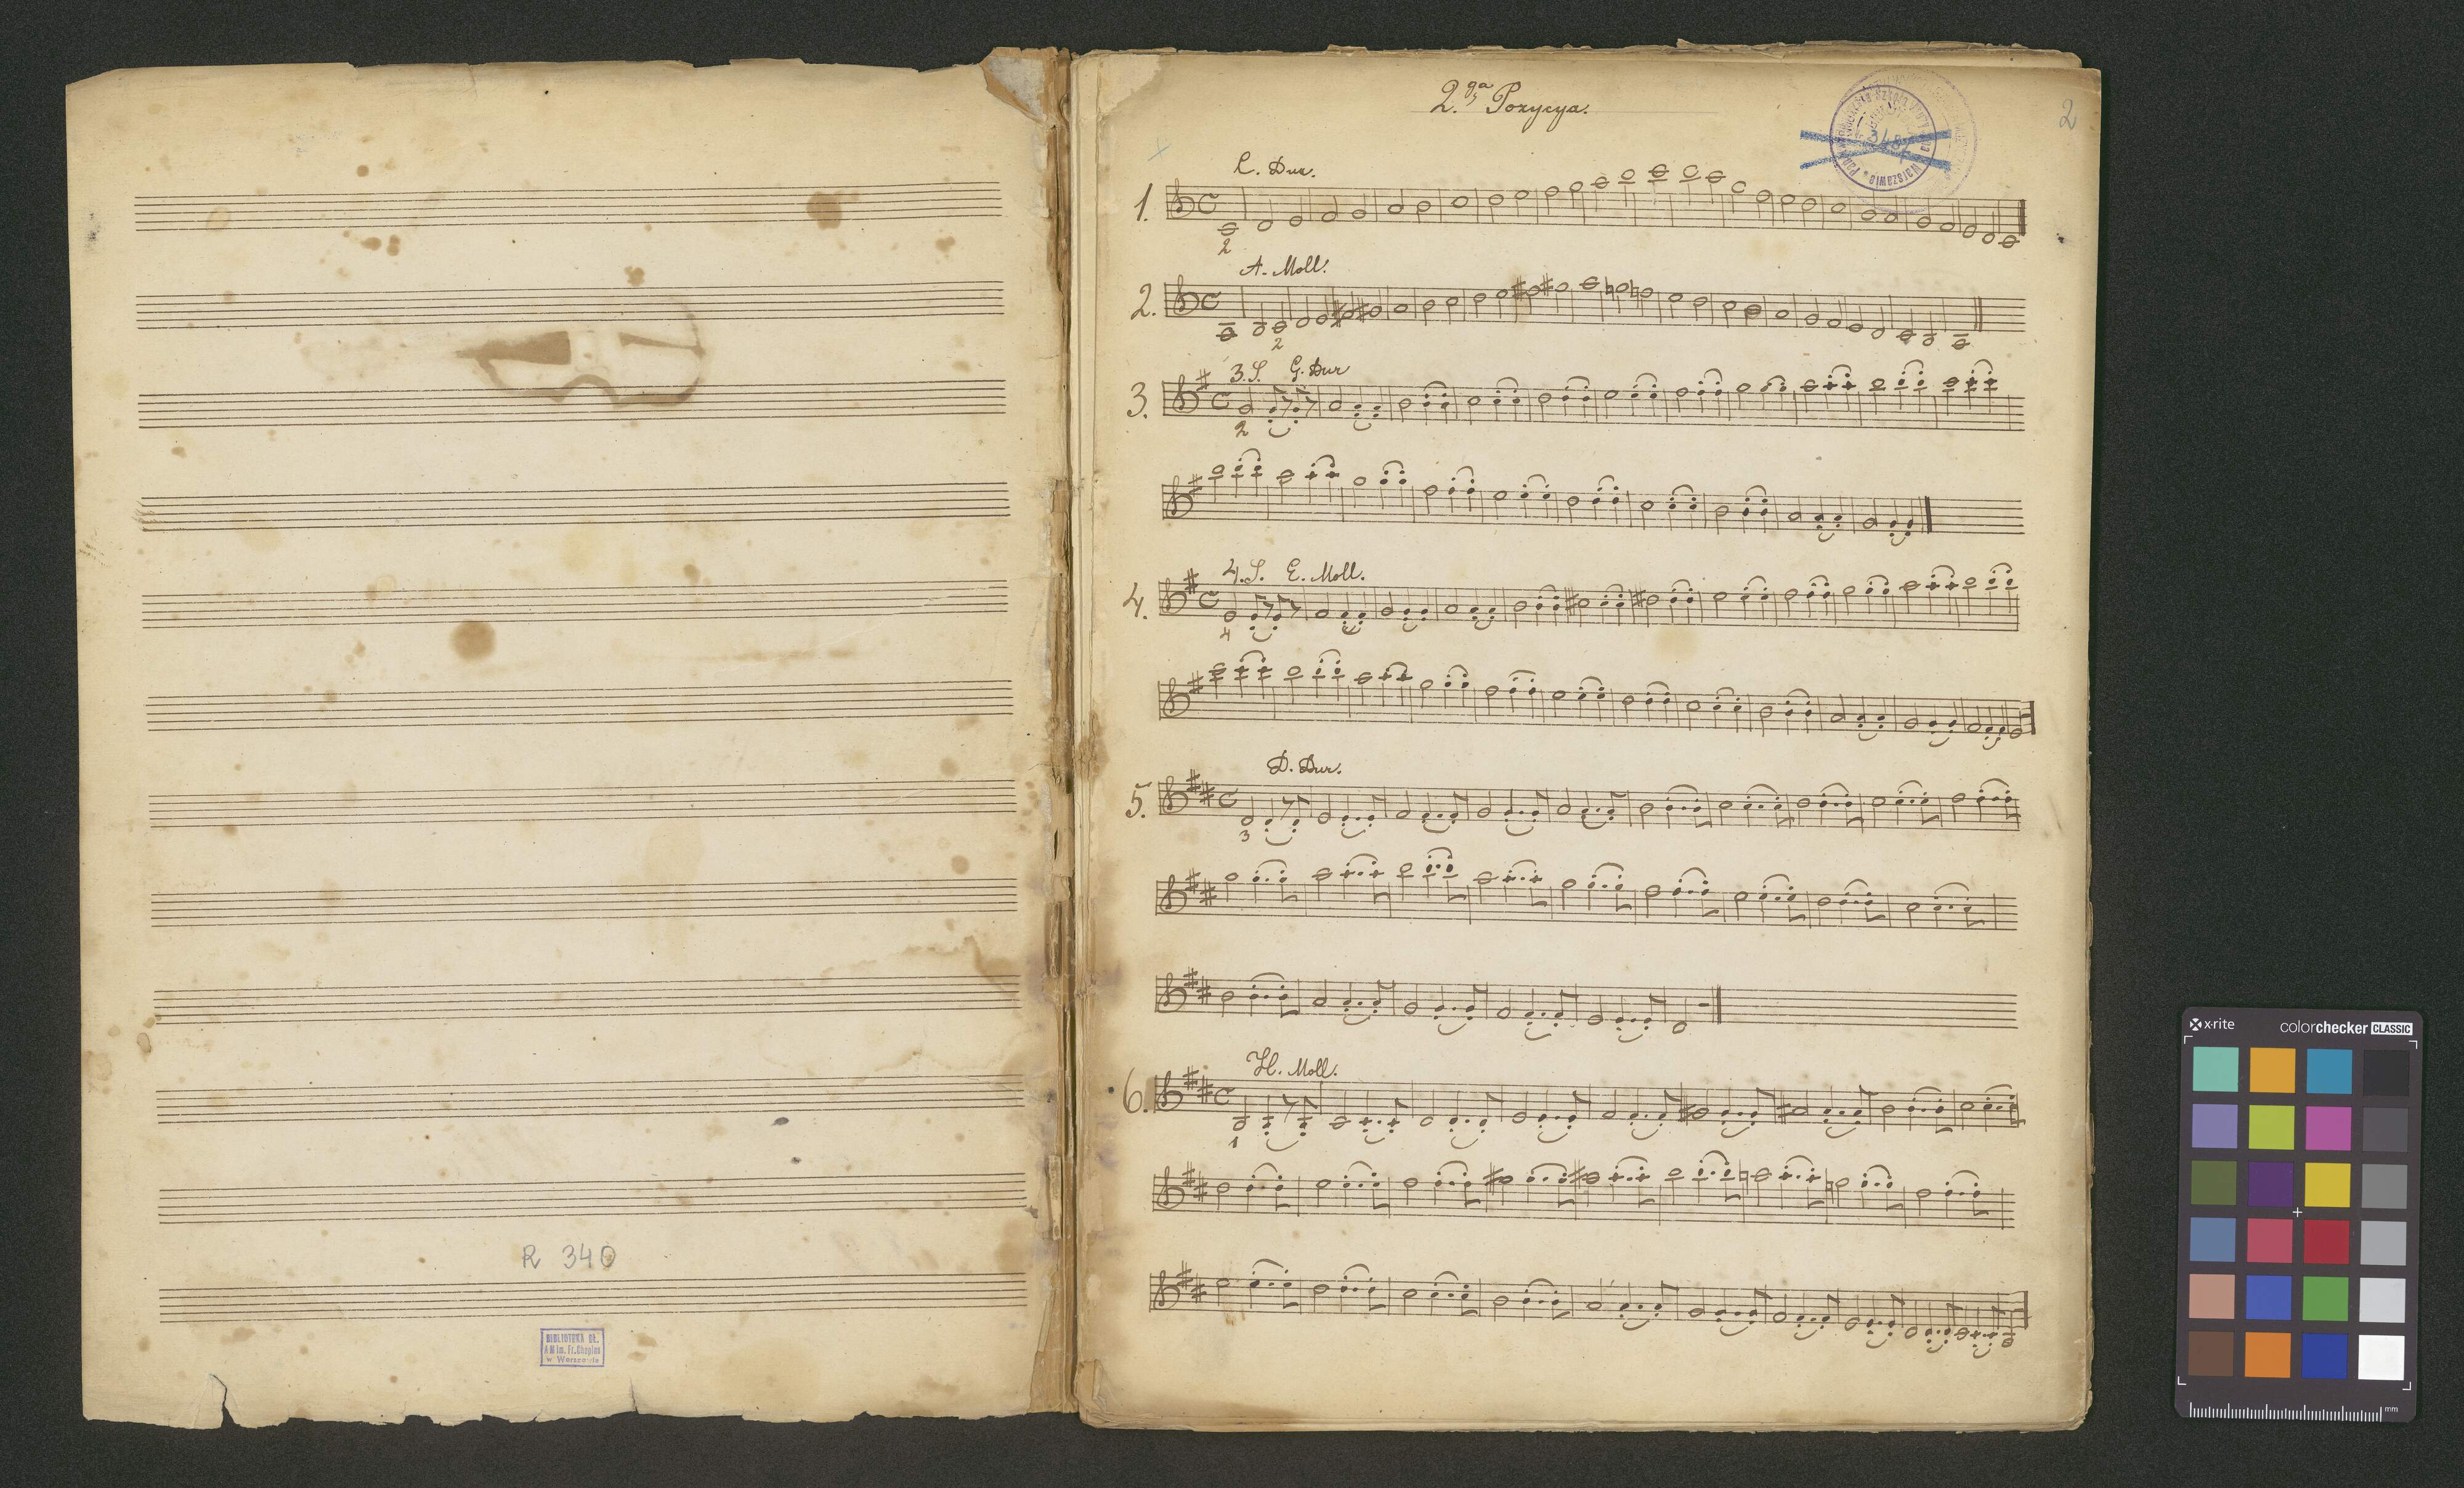 R 340
BIBLIOTEKA GŁ.
A M im. Fr. Chopina
w Warszawie
2.ga Pozycya.
2
348
Warszawa
C. Dur.
1.
2
A. Moll.
2.
2
3.S. G. Dur
3.
2
4.S. E. Moll.
4.
4
D. Dur.
5.
3
H. Moll.
6.
1
x-rite
colorchecker CLASSIC
mm